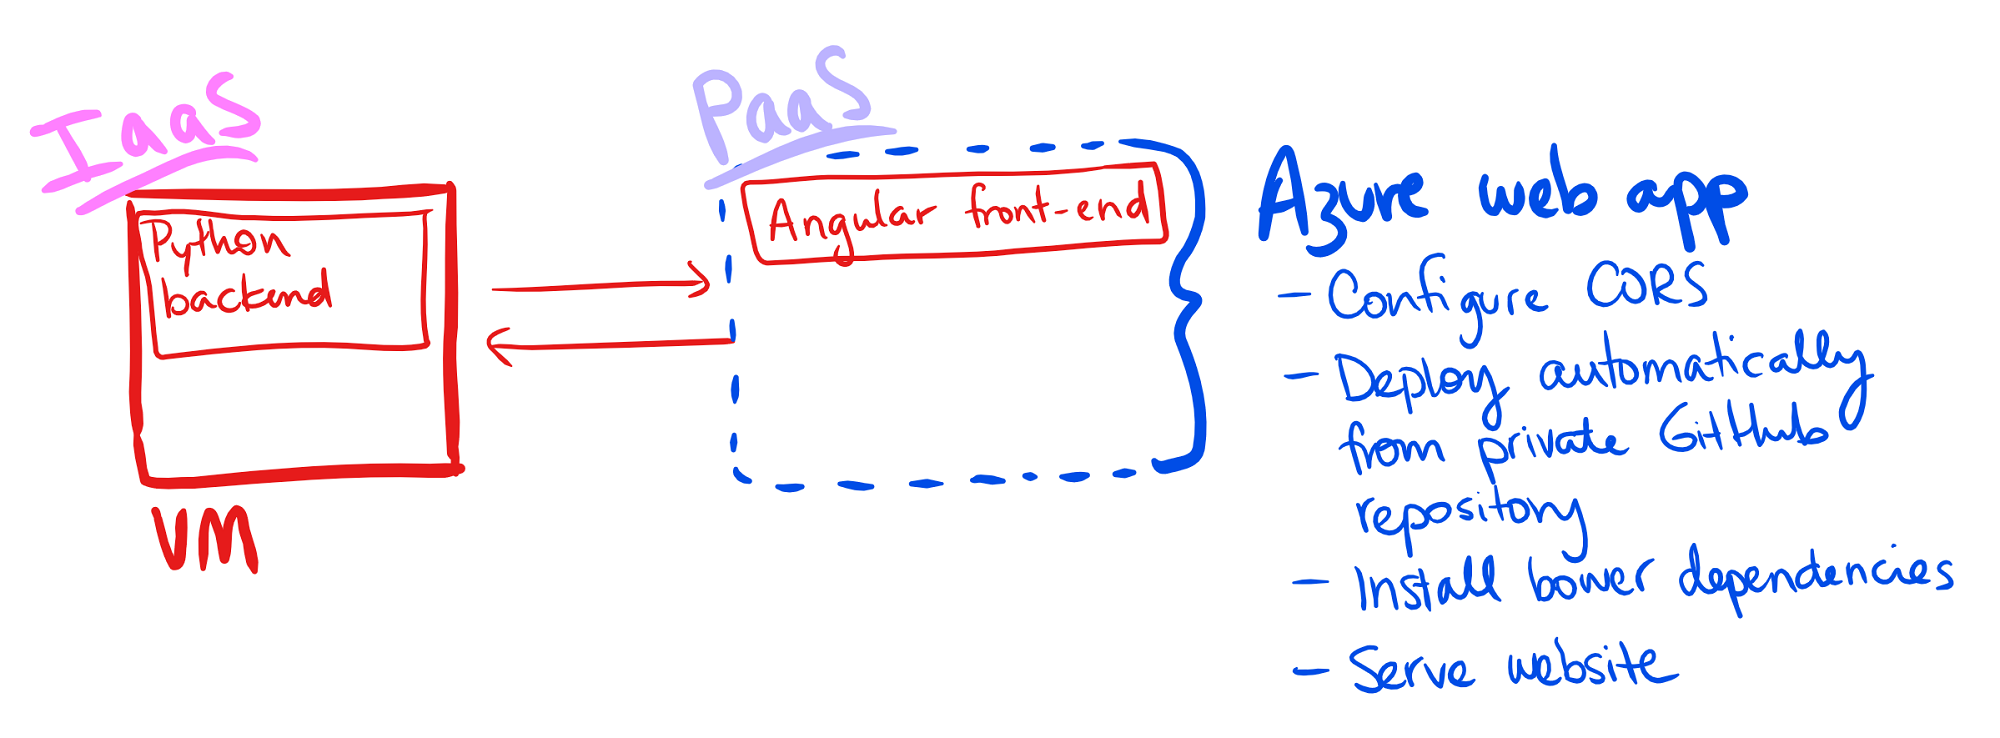 IaaS
Python
backend
VM
PaaS
Angular front-end
Azure web app
- Configure CORS
- Deploy automatically
from private GitHub
repository
- Install bower dependencies
- Serve website